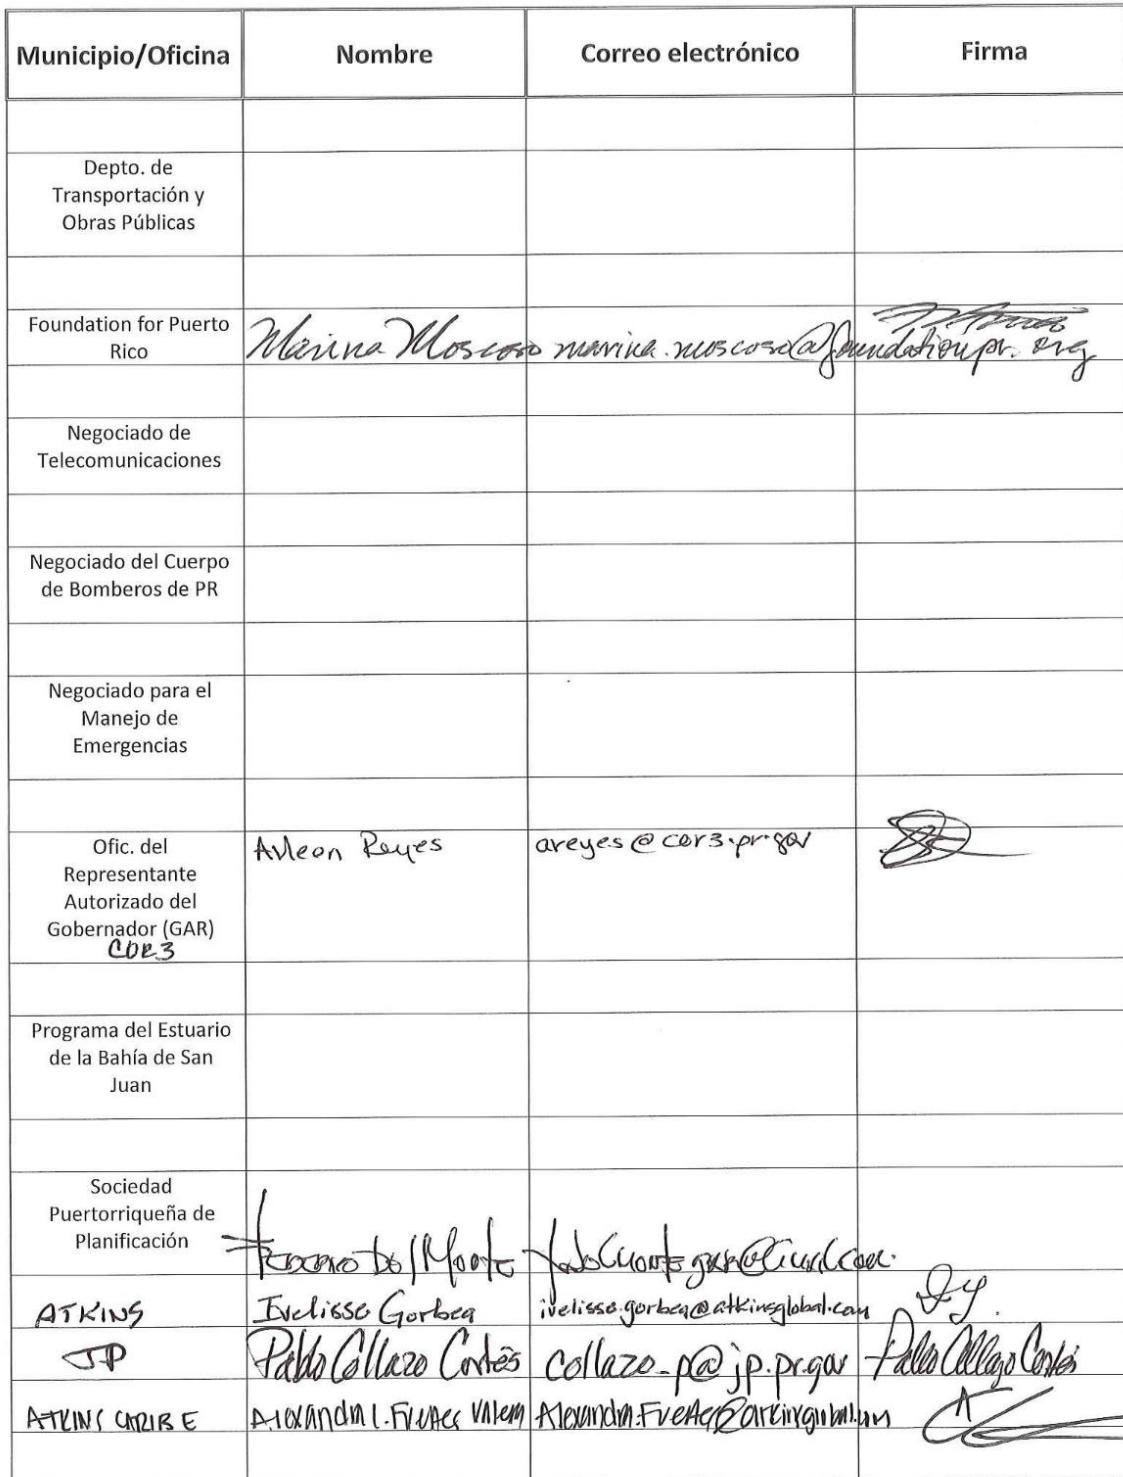 Municipio/Oficina Nombre Correo electrónico Firma
Depto. de
Transportación y
Obras Públicas
Foundation for Puerto
Rico
Marina Moscoso marina.moscoso@foundationpr.org
Negociado de
Telecomunicaciones
Negociado del Cuerpo
de Bomberos de PR
Negociado para el
Manejo de
Emergencias
Ofic. del
Representante
Autorizado del
Gobernador (GAR)
COR3
Arleen Reyes areyes@cor3.pr.gov
Programa del Estuario
de la Bahía de San
Juan
Sociedad
Puertorriqueña de
Planificación
Del Monte
ATKINS Ivelisse Gorbea ivelisse.gorbea@atkinsglobal.com
JP Pablo Collazo Cortés collazo_p@jp.pr.gov Pablo Collazo Cortés
ATKINS CARIBE